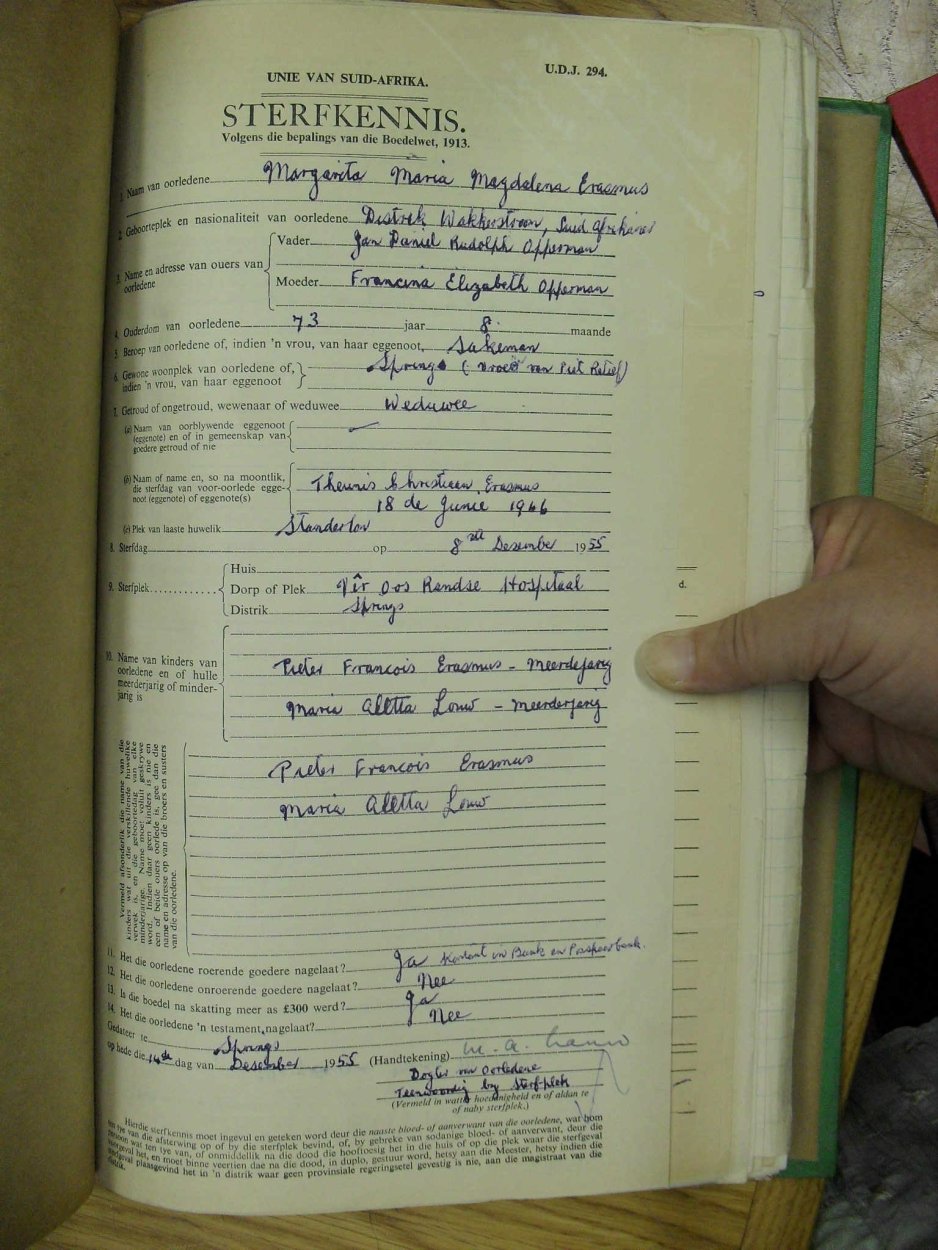 U.D.J. 294.
UNIE VAN SUID-AFRIKA.
STERFKENNIS.
Volgens die bepalings van die Boedelwet, 1913.
1. Naam van oorledene Margarita Maria Magdalena Erasmus
2. Geboorteplek en nasionaliteit van oorledene Distrik Wakkerstroom, Suid Afrikaner
3. Name en adresse van ouers van oorledene
Vader Jan Daniel Rudolph Opperman
Moeder Francina Elizabeth Opperman
4. Ouderdom van oorledene 73 jaar 8 maande
5. Beroep van oorledene of, indien 'n vrou, van haar eggenoot, Sakeman
6. Gewone woonplek van oorledene of, Springs (vroeër van Piet Retief)
indien 'n vrou, van haar eggenoot
7. Getroud of ongetroud, wewenaar of weduwee Weduwee
(a) Naam van oorblywende eggenoot
(eggenote) en of in gemeenskap van
goedere getroud of nie
(b) Naam of name en, so na moontlik,
die sterfdag van voor-oorlede egge-
noot (eggenote) of eggenote(s)
Theunis Christiaan Erasmus
18 de Junie 1966
(c) Plek van laaste huwelik Standerton
8. Sterfdag op 8ste Desember 1955
9. Sterfplek
Huis
Dorp of Plek Vêr Oos Randse Hospitaal
Distrik Springs
10. Name van kinders van
oorledene en of hulle
meerderjarig of minder-
jarig is
Pieter Francois Erasmus - Meerderjarig
Maria Aletta Louw - Meerderjarig
Vermeld afsonderlik die name van die
kinders wat uit die verskillende huwelike
verwek is, en die geboortedag van elke
minderjarige. Name moet voluit geskrywe
word. Indien daar geen kinders is nie en
een of beide ouers oorlede is, gee dan die
name en adresse op van die broers en susters
van die oorledene.
Pieter Francois Erasmus
Maria Aletta Louw
11. Het die oorledene roerende goedere nagelaat? Ja Kontant in Bank en Poskoorbank.
12. Het die oorledene onroerende goedere nagelaat? Nee
13. Is die boedel na skatting meer as £300 werd? Ja
14. Het die oorledene 'n testament nagelaat? Nee
Gedateer te Springs
op hede die 14de dag van Desember 1955 (Handtekening) M. A. Louw
Dogter van Oorledene
Teenwoordig by Sterfplek
(Vermeld in watter hoedanigheid en of aldan te
of naby sterfplek.)
Hierdie sterfkennis moet ingevul en geteken word deur die naaste bloed- of aanverwant van die oorledene, wat hom
ten tye van die afsterwing op of by die sterfplek bevind, of, by gebreke van sodanige bloed- of aanverwant, deur die
persoon wat ten tye van, of onmiddellik na die dood die hooftoesig het in die huis of op die plek waar die sterfgeval
voorgeval het, en moet binne veertien dae na die dood, in duplo, gestuur word, hetsy aan die Meester, hetsy indien die
sterfgeval plaasgevind het in 'n distrik waar geen provinsiale regeringsetel gevestig is nie, aan die magistraat van die
distrik.
d.